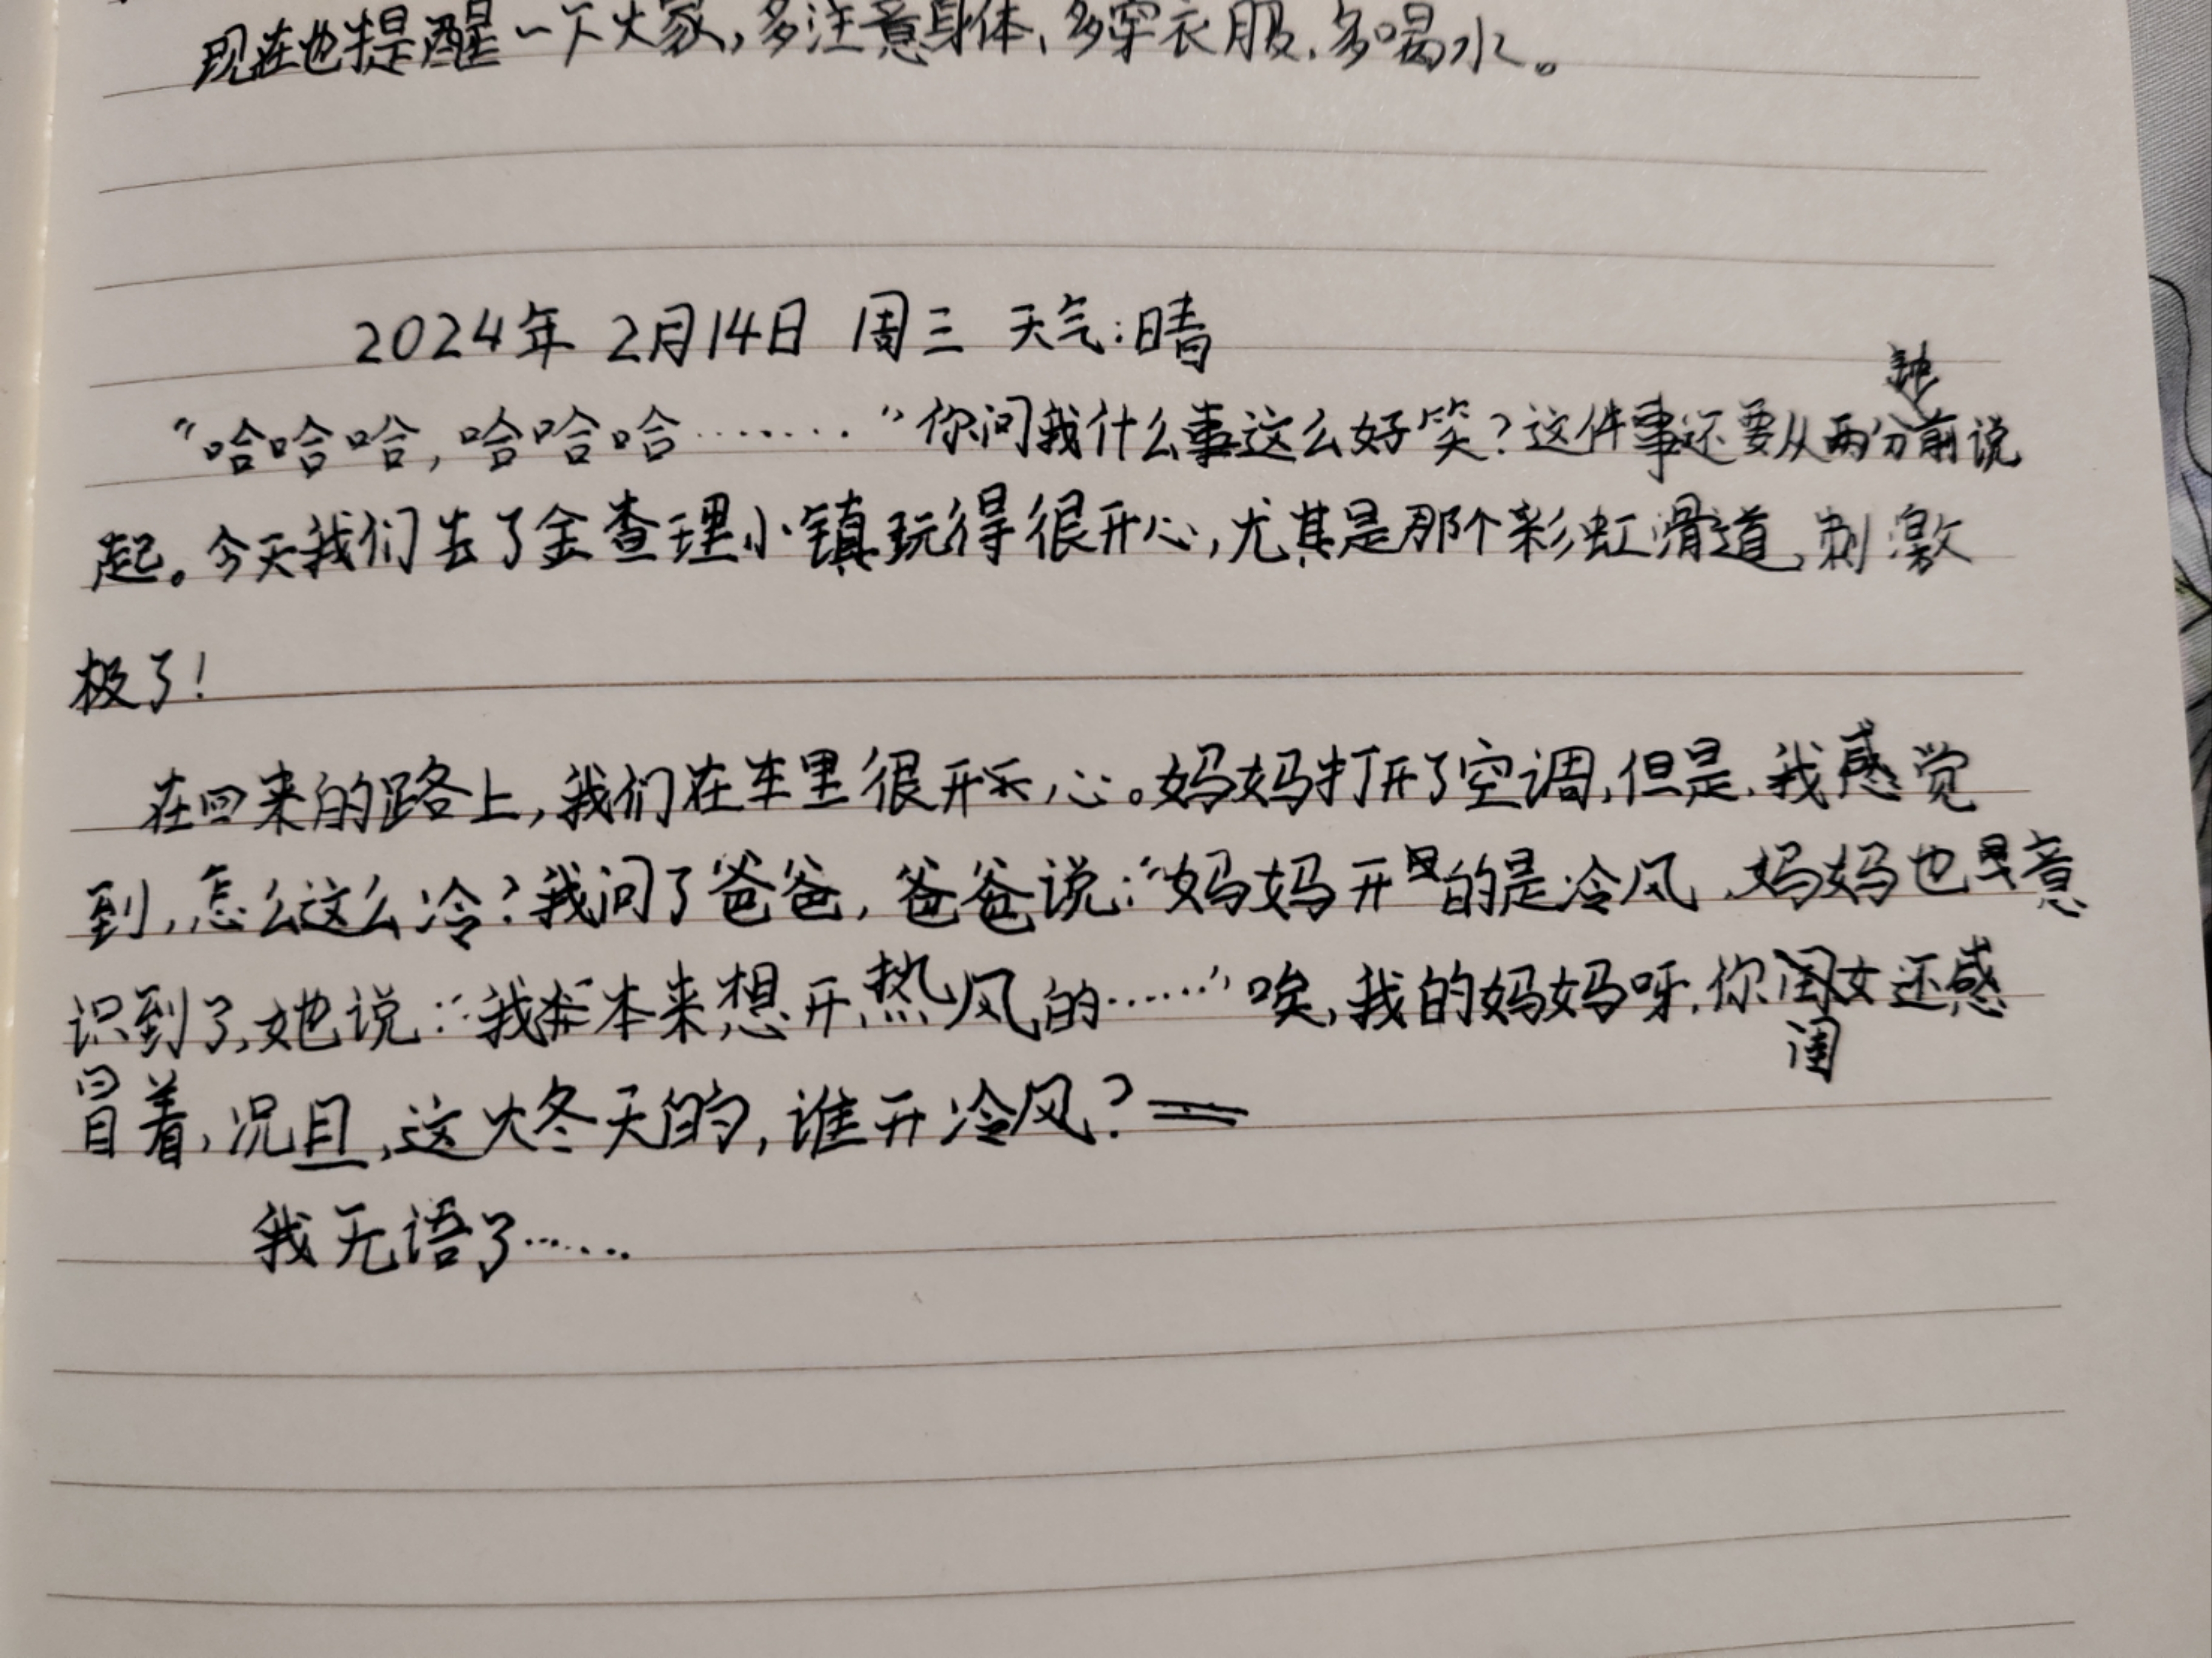 现在也提醒一下大家，多注意身体，多穿衣服，多喝水。
2024年 2月14日 周三 天气：晴
“哈哈哈，哈哈哈……”你问我什么事这么好笑？这件事还要从两分钟前说
起。今天我们去了金查理小镇玩得很开心，尤其是那个彩虹滑道，刺激
极了！
在回来的路上，我们在车里很开心。妈妈打开了空调，但是，我感觉
到，怎么这么冷？我问了爸爸，爸爸说：“妈妈开的是冷风，妈妈也意
识到了，她说：“我本来想开热风的……”唉，我的妈妈呀，你闺女还感
冒着，况且，这大冬天的，谁开冷风？
我无语了……